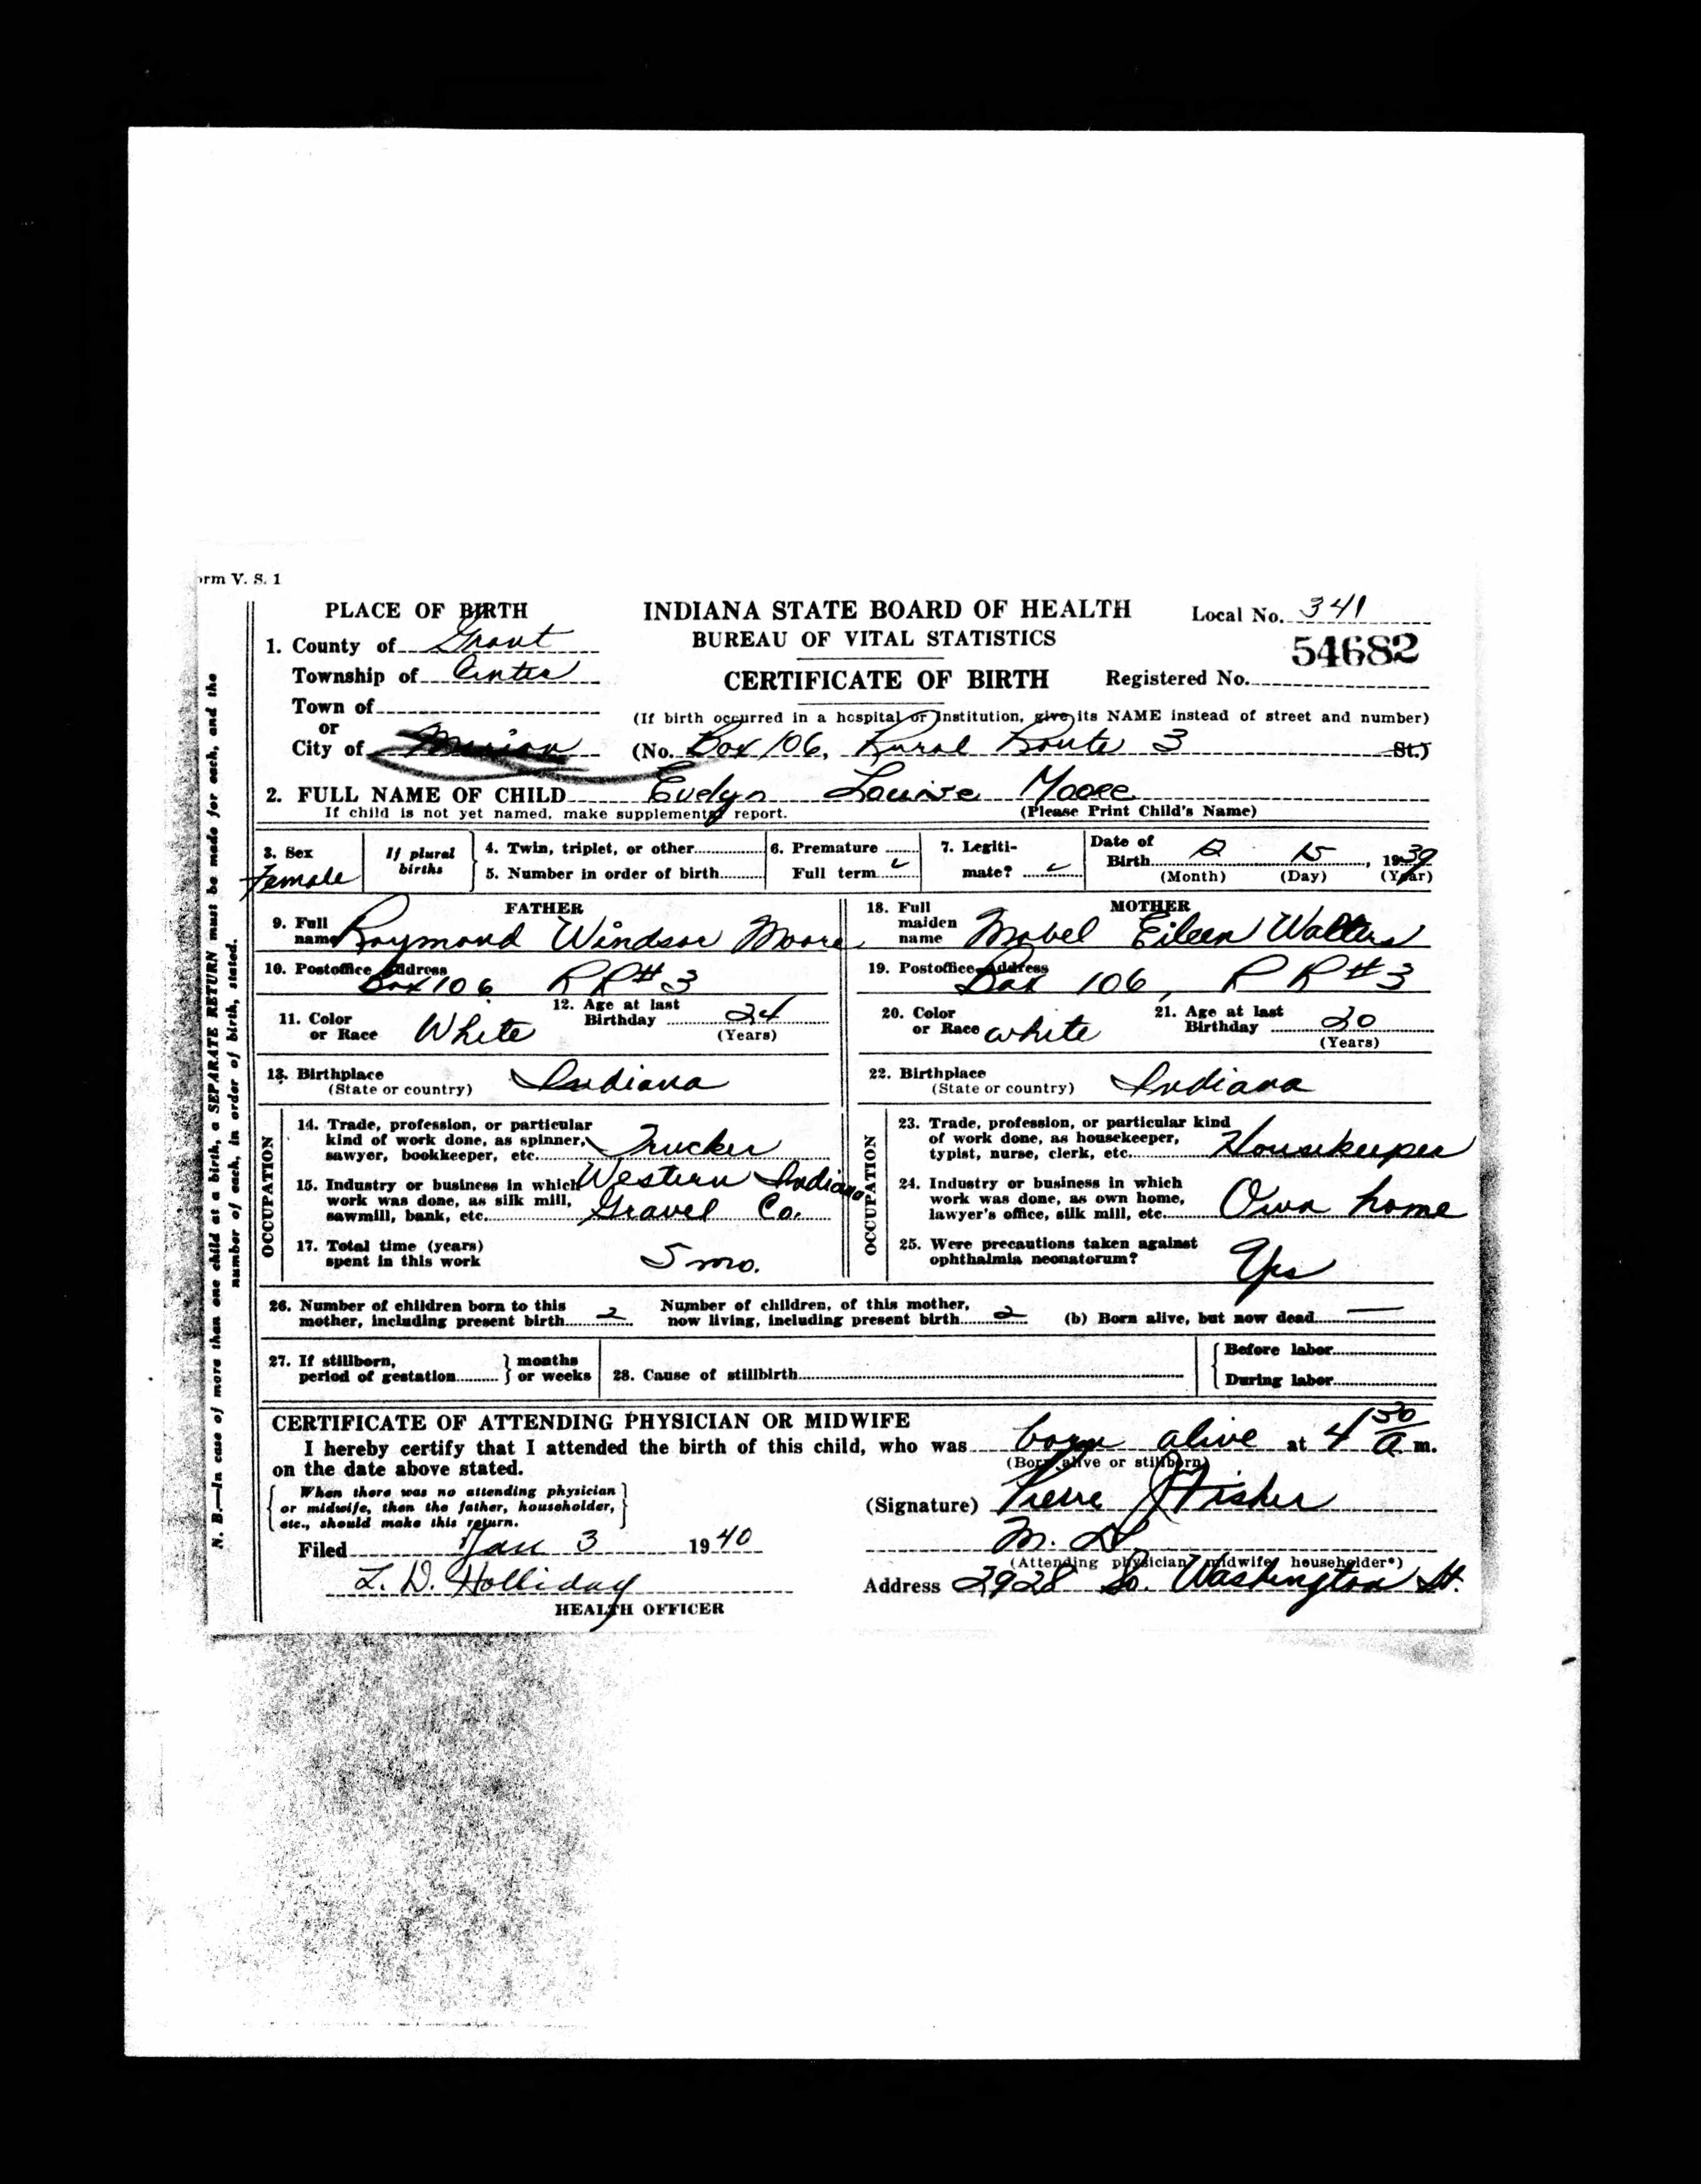 orm V. S. 1
PLACE OF BIRTH
INDIANA STATE BOARD OF HEALTH
Local No. 341
1. County of Grant
BUREAU OF VITAL STATISTICS
54682
Township of Center
CERTIFICATE OF BIRTH
Registered No.
Town of
or
(If birth occurred in a hospital or institution, give its NAME instead of street and number)
City of Marion
(No. Box 106, Rural Route 3 St.)
2. FULL NAME OF CHILD Evelyn Louise Moore
If child is not yet named, make supplemental report.
(Please Print Child's Name)
3. Sex
Female
If plural
births
4. Twin, triplet, or other
5. Number in order of birth
6. Premature
Full term ✓
7. Legiti-
mate? ✓
Date of
Birth 12 15, 1939
(Month) (Day) (Year)
FATHER
9. Full
name Raymond Windsor Moore
10. Postoffice Address
Box 106 RR#3
11. Color
or Race White
12. Age at last
Birthday 24
(Years)
13. Birthplace
(State or country) Indiana
OCCUPATION
14. Trade, profession, or particular
kind of work done, as spinner,
sawyer, bookkeeper, etc. Trucker
15. Industry or business in which Western Indiana
work was done, as silk mill,
sawmill, bank, etc. Gravel Co.
17. Total time (years)
spent in this work 5 mo.
MOTHER
18. Full
maiden
name Mabel Eileen Walters
19. Postoffice Address
Box 106, RR#3
20. Color
or Race white
21. Age at last
Birthday 20
(Years)
22. Birthplace
(State or country) Indiana
OCCUPATION
23. Trade, profession, or particular kind
of work done, as housekeeper,
typist, nurse, clerk, etc. Housekeeper
24. Industry or business in which
work was done, as own home,
lawyer's office, silk mill, etc. Own home
25. Were precautions taken against
ophthalmia neonatorum? Yes
26. Number of children born to this
mother, including present birth 2
Number of children, of this mother,
now living, including present birth 2
(b) Born alive, but now dead —
27. If stillborn,
period of gestation
months
or weeks
28. Cause of stillbirth
Before labor
During labor
CERTIFICATE OF ATTENDING PHYSICIAN OR MIDWIFE
I hereby certify that I attended the birth of this child, who was born alive at 4 50 a. m.
(Born alive or stillborn)
on the date above stated.
When there was no attending physician
or midwife, then the father, householder,
etc., should make this return.
(Signature) Fisher
M. D.
(Attending physician, midwife, householder*)
Filed Jan 3 1940
L. D. Holliday
HEALTH OFFICER
Address 2928 So. Washington St.
N. B.—In case of more than one child at a birth, a SEPARATE RETURN must be made for each, and the
number of each, in order of birth, stated.